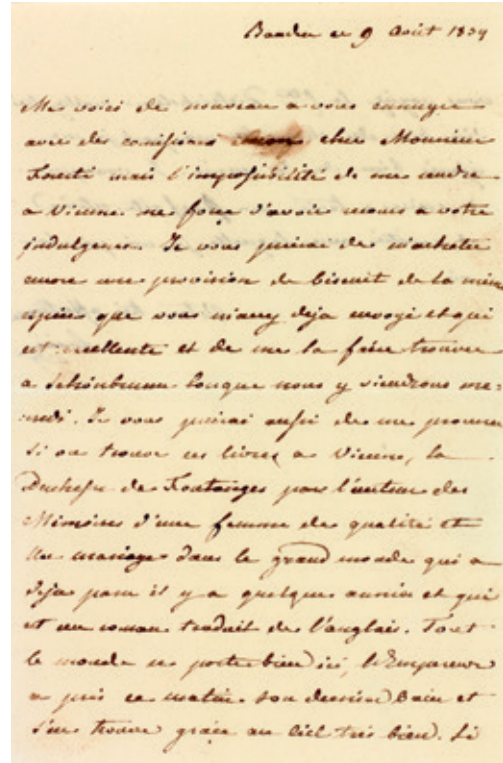 Baaden ce 9 Août 1834
Me voici de nouveau a vous ennuyer
avec des comissions mon cher Monsieur
mais l'impossibilité de me rendre
a Vienne me force d'avoir recours a votre
indulgence. Je vous prierai de m'acheter
encore une provision de biscuit de la même
espèce que vous m'avez deja envoyé et qui
est excellente et de me la faire trouver
a Schönbrunn lorsque nous y viendrons me=
credi. Je vous prierai aussi de me procurer
si on trouve ces livres a Vienne, la
Duchesse de Fontanges par l'auteur des
Mémoires d'une femme de qualité et
Un mariage dans le grand monde qui a
deja paru il y a quelques années et qui
est un roman traduit de l'anglais. Tout
le monde se porte bien ici, l'Empereur
a pris ce matin son dernier Bain et
s'en trouve grace au Ciel très bien. Si